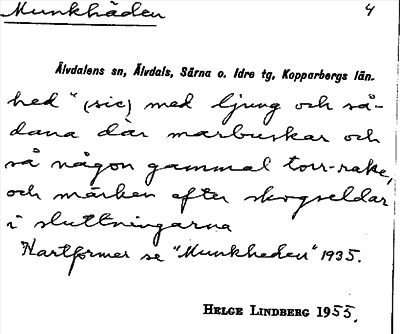 Munkhäden 4
Älvdalens sn, Älvdals, Särna o. Idre tg, Kopparbergs län.
hed" (sic) med ljung och så-
dana där marbuskar och
så någon gammal torr-rake,
och märken efter skogseldar
i sluttningarna
Kartformer se "Munkheden" 1935.
HELGE LINDBERG 1955.